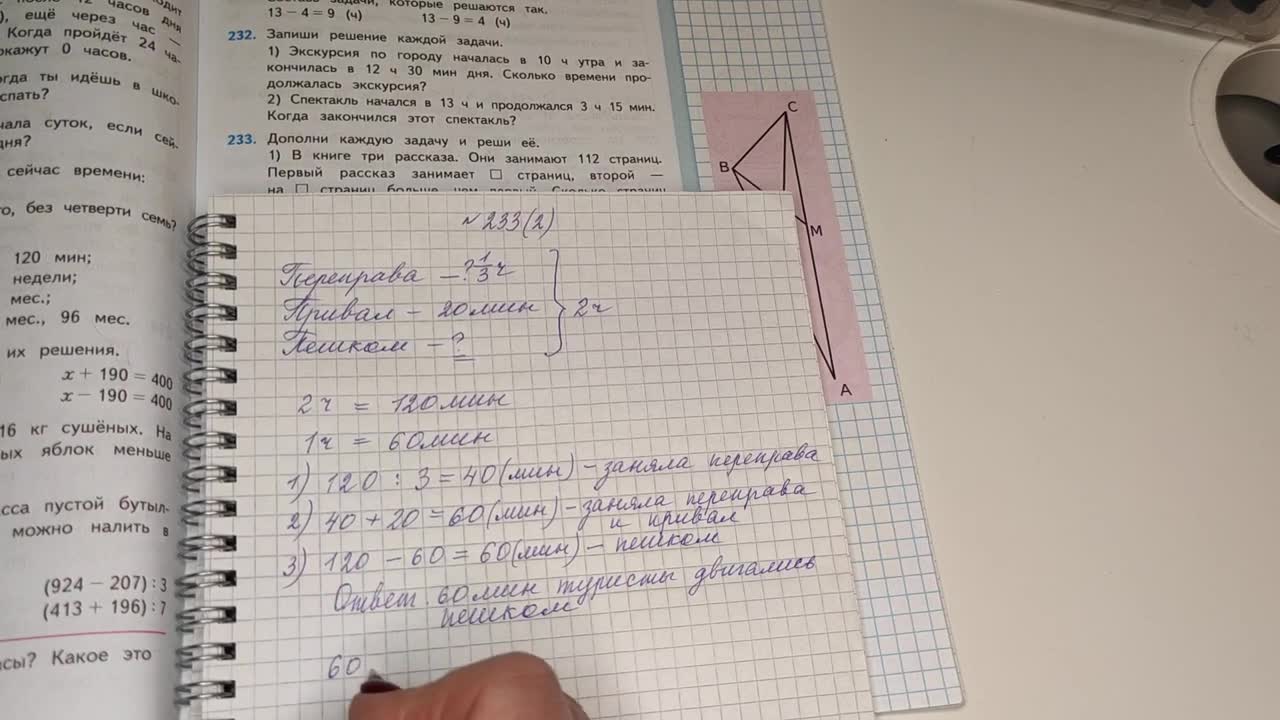 часов дня
), ещё через час —
Когда пройдёт 24 ча-
окажут 0 часов.
огда ты идёшь в шко-
спать?
чала суток, если сей-
дня?
сейчас времени:
го, без четверти семь?
120 мин;
недели;
мес.;
мес., 96 мес.
их решения.
x + 190 = 400
x − 190 = 400
16 кг сушёных. На
ых яблок меньше
сса пустой бутыл-
можно налить в
(924 − 207) : 3
(413 + 196) : 7
сы? Какое это
задачи, которые решаются так.
13 − 4 = 9 (ч) 13 − 9 = 4 (ч)
232. Запиши решение каждой задачи.
1) Экскурсия по городу началась в 10 ч утра и за-
кончилась в 12 ч 30 мин дня. Сколько времени про-
должалась экскурсия?
2) Спектакль начался в 13 ч и продолжался 3 ч 15 мин.
Когда закончился этот спектакль?
233. Дополни каждую задачу и реши её.
1) В книге три рассказа. Они занимают 112 страниц.
Первый рассказ занимает □ страниц, второй —
на □ страниц больше, чем первый. Сколько страниц
C
B
M
A
№ 233(2)
Переправа – ? 1/3 ч
Привал – 20 мин } 2 ч
Пешком – ?
2 ч = 120 мин
1 ч = 60 мин
1) 120 : 3 = 40 (мин) – заняла переправа
2) 40 + 20 = 60 (мин) – заняла переправа
и привал
3) 120 – 60 = 60 (мин) – пешком
Ответ: 60 мин туристы двигались
пешком
60